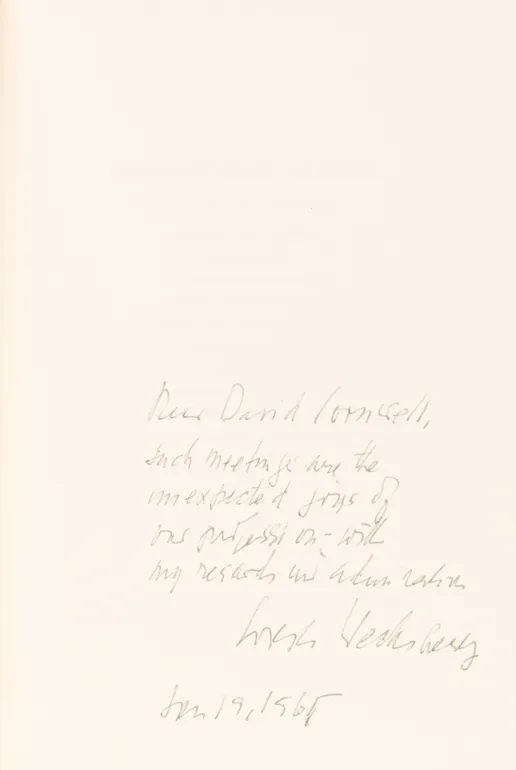 Dear David Cornwell,
such meetings are the
unexpected joys of
our profession - with
my regards and admiration
Joseph Wechsberg
Jan 19, 1965